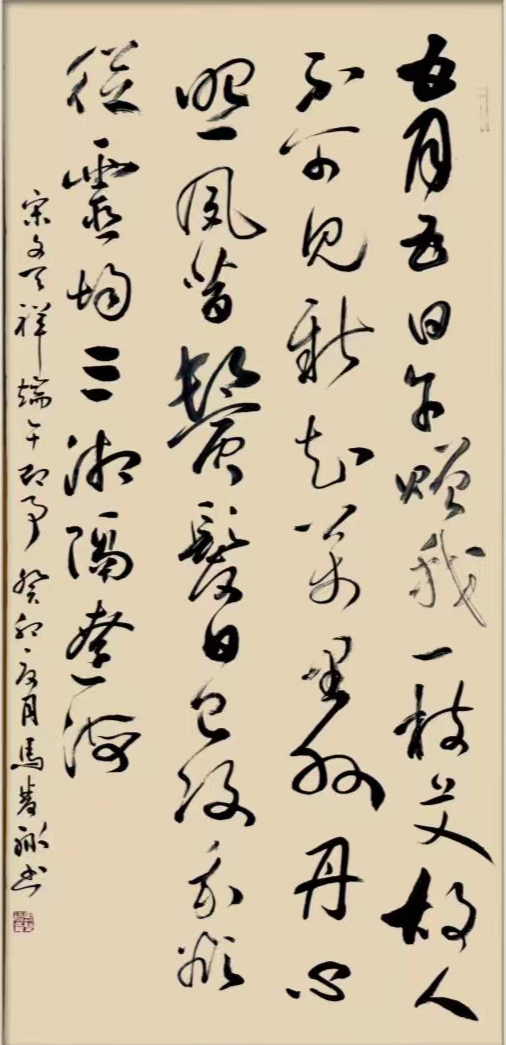 五月五日午贈我一枝艾故人
不可見新知萬里外丹心
照夙昔鬢髮日已改我欲
從靈均三湘隔遼海
宋文天祥端午即事 癸卯夏月馬書